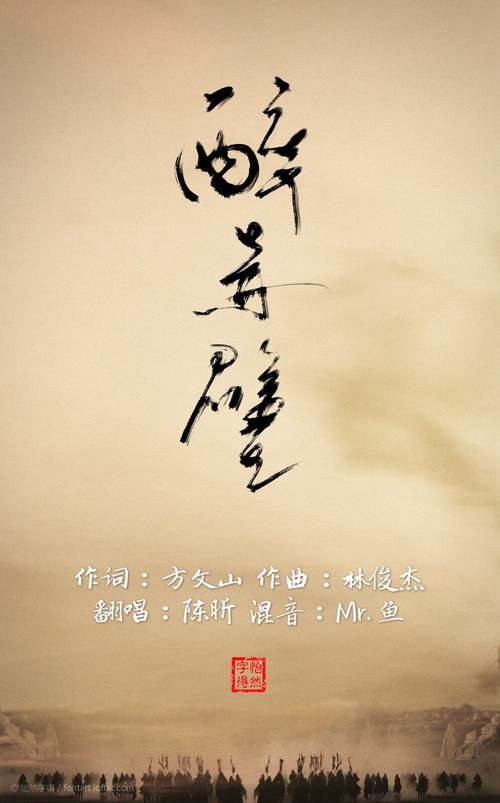 醉赤壁
作词：方文山 作曲：林俊杰
翻唱：陈昕 混音：Mr.鱼
怡然
字得
© 怡然字得 / fontart.lofter.com